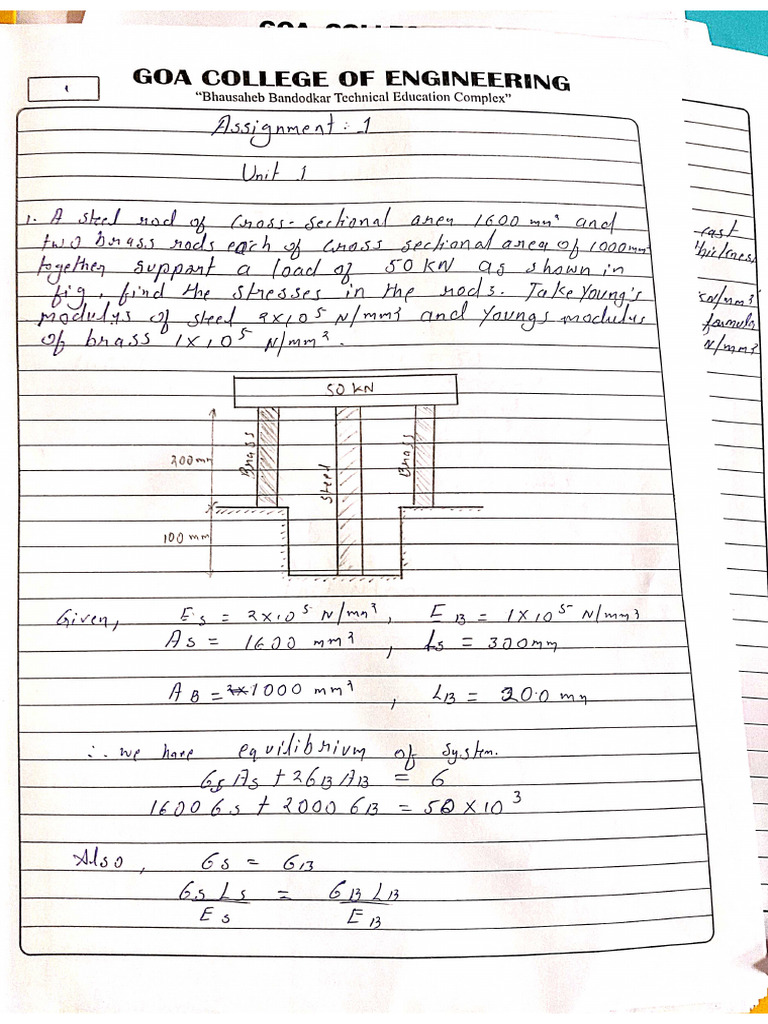 GOA COLLEGE OF ENGINEERING
"Bhausaheb Bandodkar Technical Education Complex"
1
Assignment: 1
Unit 1
1. A steel rod of cross-sectional area 1600 mm² and
two brass rods each of cross sectional area of 1000mm²
together support a load of 50 KN as shown in
fig, find the stresses in the rods. Take Young's
modulus of steel 2x10⁵ N/mm² and Youngs modulus
of brass 1x10⁵ N/mm².
50 KN
200mm
Brass
Steel
Brass
100 mm
Given, Es = 2x10⁵ N/mm², EB = 1x10⁵ N/mm²
As = 1600 mm², Ls = 300mm
AB = 1000 mm², LB = 200 mm
∴ we have equilibrium of system.
6s As + 26B AB = 6
1600 6s + 2000 6B = 50 x 10³
Also, 6s = 6B
6s Ls / Es = 6B LB / EB
cast
thickness
KN/mm²
formula
N/mm²